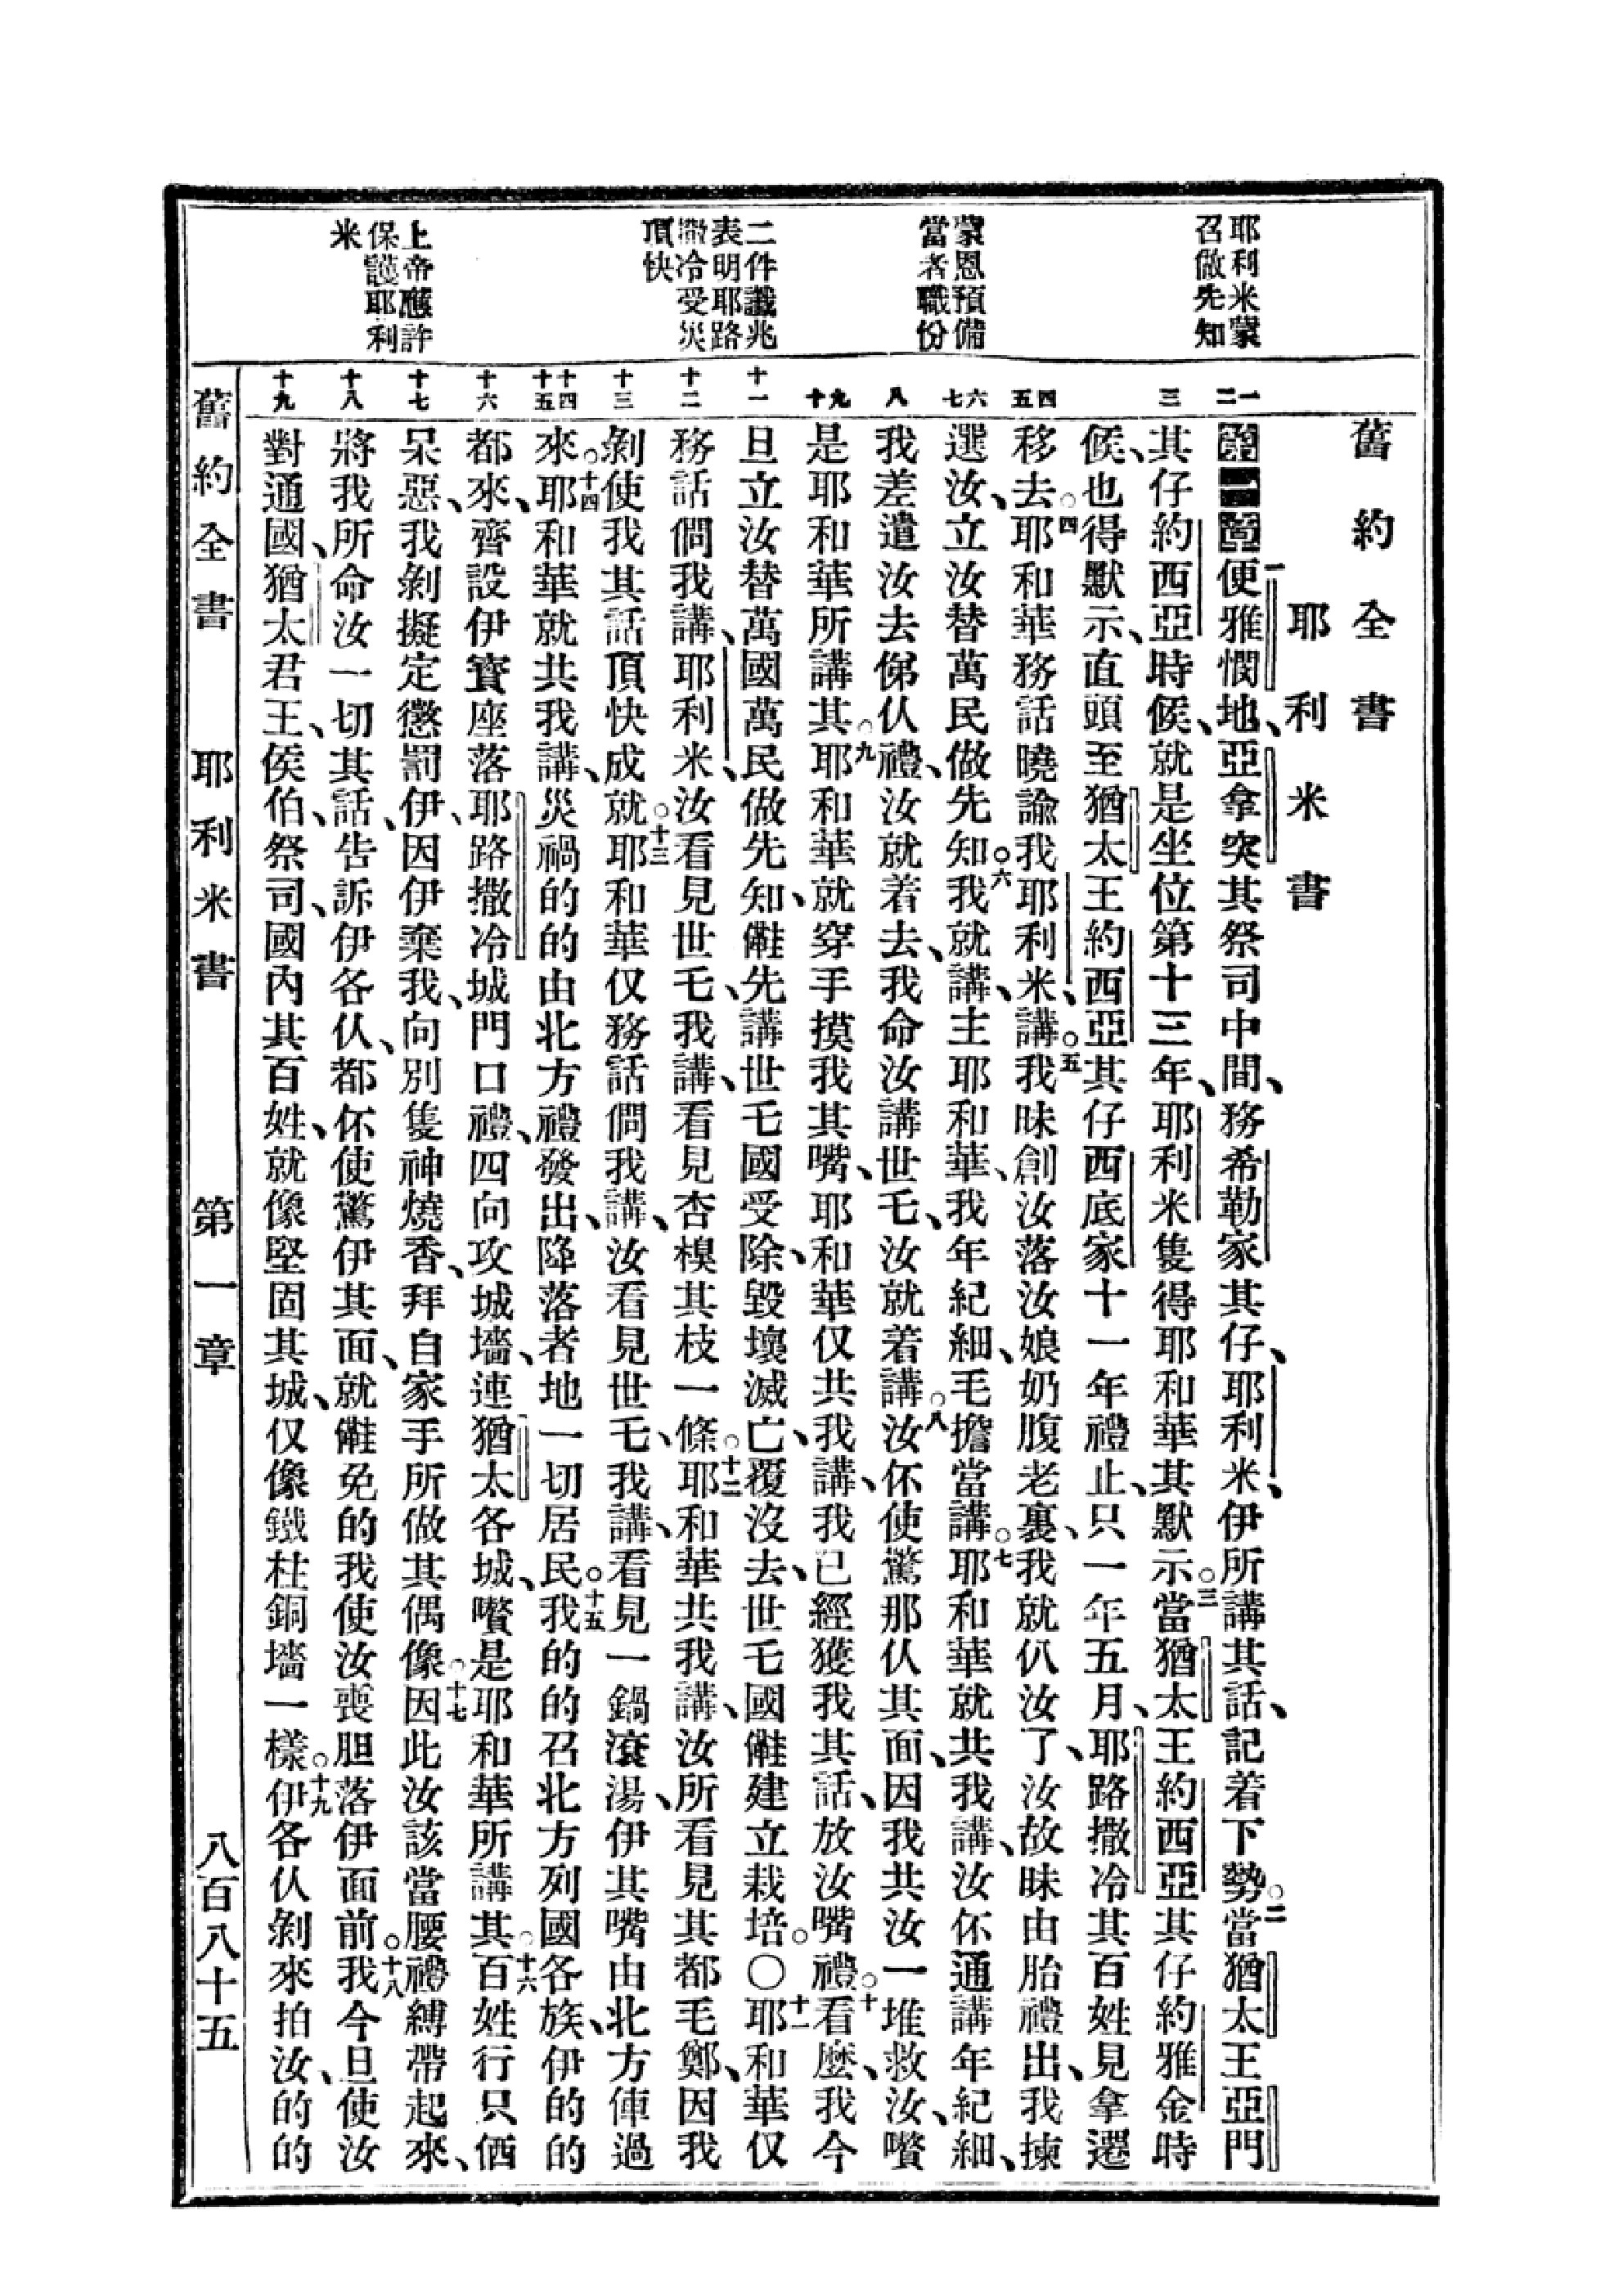 耶利米蒙
召做先知
蒙恩預備
當者職份
二件讖兆
表明耶路
撒冷受災
頂快
上帝應許
保護耶利
米
一 二 三 四 五 六 七 八 九 十 十一 十二 十三 十四 十五 十六 十七 十八 十九
舊約全書
耶利米書
第一章一便雅憫地、亞拿突其祭司中間、務希勒家其仔、耶利米、伊所講其話、記着下勢。二當猶太王亞門
其仔約西亞時候、就是坐位第十三年、耶利米隻得耶和華其默示。三當猶太王約西亞其仔約雅金時
候、也得默示、直頭至猶太王約西亞其仔西底家十一年禮止、只一年五月、耶路撒冷其百姓見拿遷
移去。四耶和華務話曉諭我耶利米、講。五我昧創汝落汝娘奶腹老裏、我就仈汝了、汝故昧由胎禮出、我揀
選汝、立汝替萬民做先知。六我就講、主耶和華、我年紀細、毛擔當講。七耶和華就共我講、汝伓通講年紀細、
我差遣汝去俤仈禮、汝就着去、我命汝講世乇、汝就着講。八汝伓使驚那仈其面、因我共汝一堆救汝、嚽
是耶和華所講其。九耶和華就穿手摸我其嘴、耶和華仅共我講、我已經獲我其話、放汝嘴禮。十看麽、我今
旦立汝替萬國萬民做先知、㒃先講世乇國受除、毀壞滅亡、覆沒去、世乇國㒃建立栽培。〇十一耶和華仅
務話問我講、耶利米、汝看見世乇、我講、看見杏模其枝一條。十二耶和華共我講、汝所看見其都毛鄭、因我
剝使我其話頂快成就。十三耶和華仅務話問我講、汝看見世乇、我講、看見一鍋滾湯、伊其嘴由北方俥過
來。十四耶和華就共我講、災禍的的由北方禮發出、降落者地一切居民。十五我的的召北方列國各族、伊的的
都來、齊設伊寶座落耶路撒冷城門口禮、四向攻城墻、連猶太各城、嚽是耶和華所講其。十六百姓行只価
呆惡、我剝擬定懲罰伊、因伊棄我、向別隻神燒香、拜自家手所做其偶像。十七因此汝該當腰禮縛帶起來、
將我所命汝一切其話、告訴伊各仈、都伓使驚伊其面、就㒃免的我使汝喪胆落伊面前。十八我今旦使汝
對通國、猶太君王、侯伯、祭司、國內其百姓、就像堅固其城、仅像鐵柱銅墻一樣。十九伊各仈剝來拍汝、的的
舊約全書 耶利米書 第一章 八百八十五